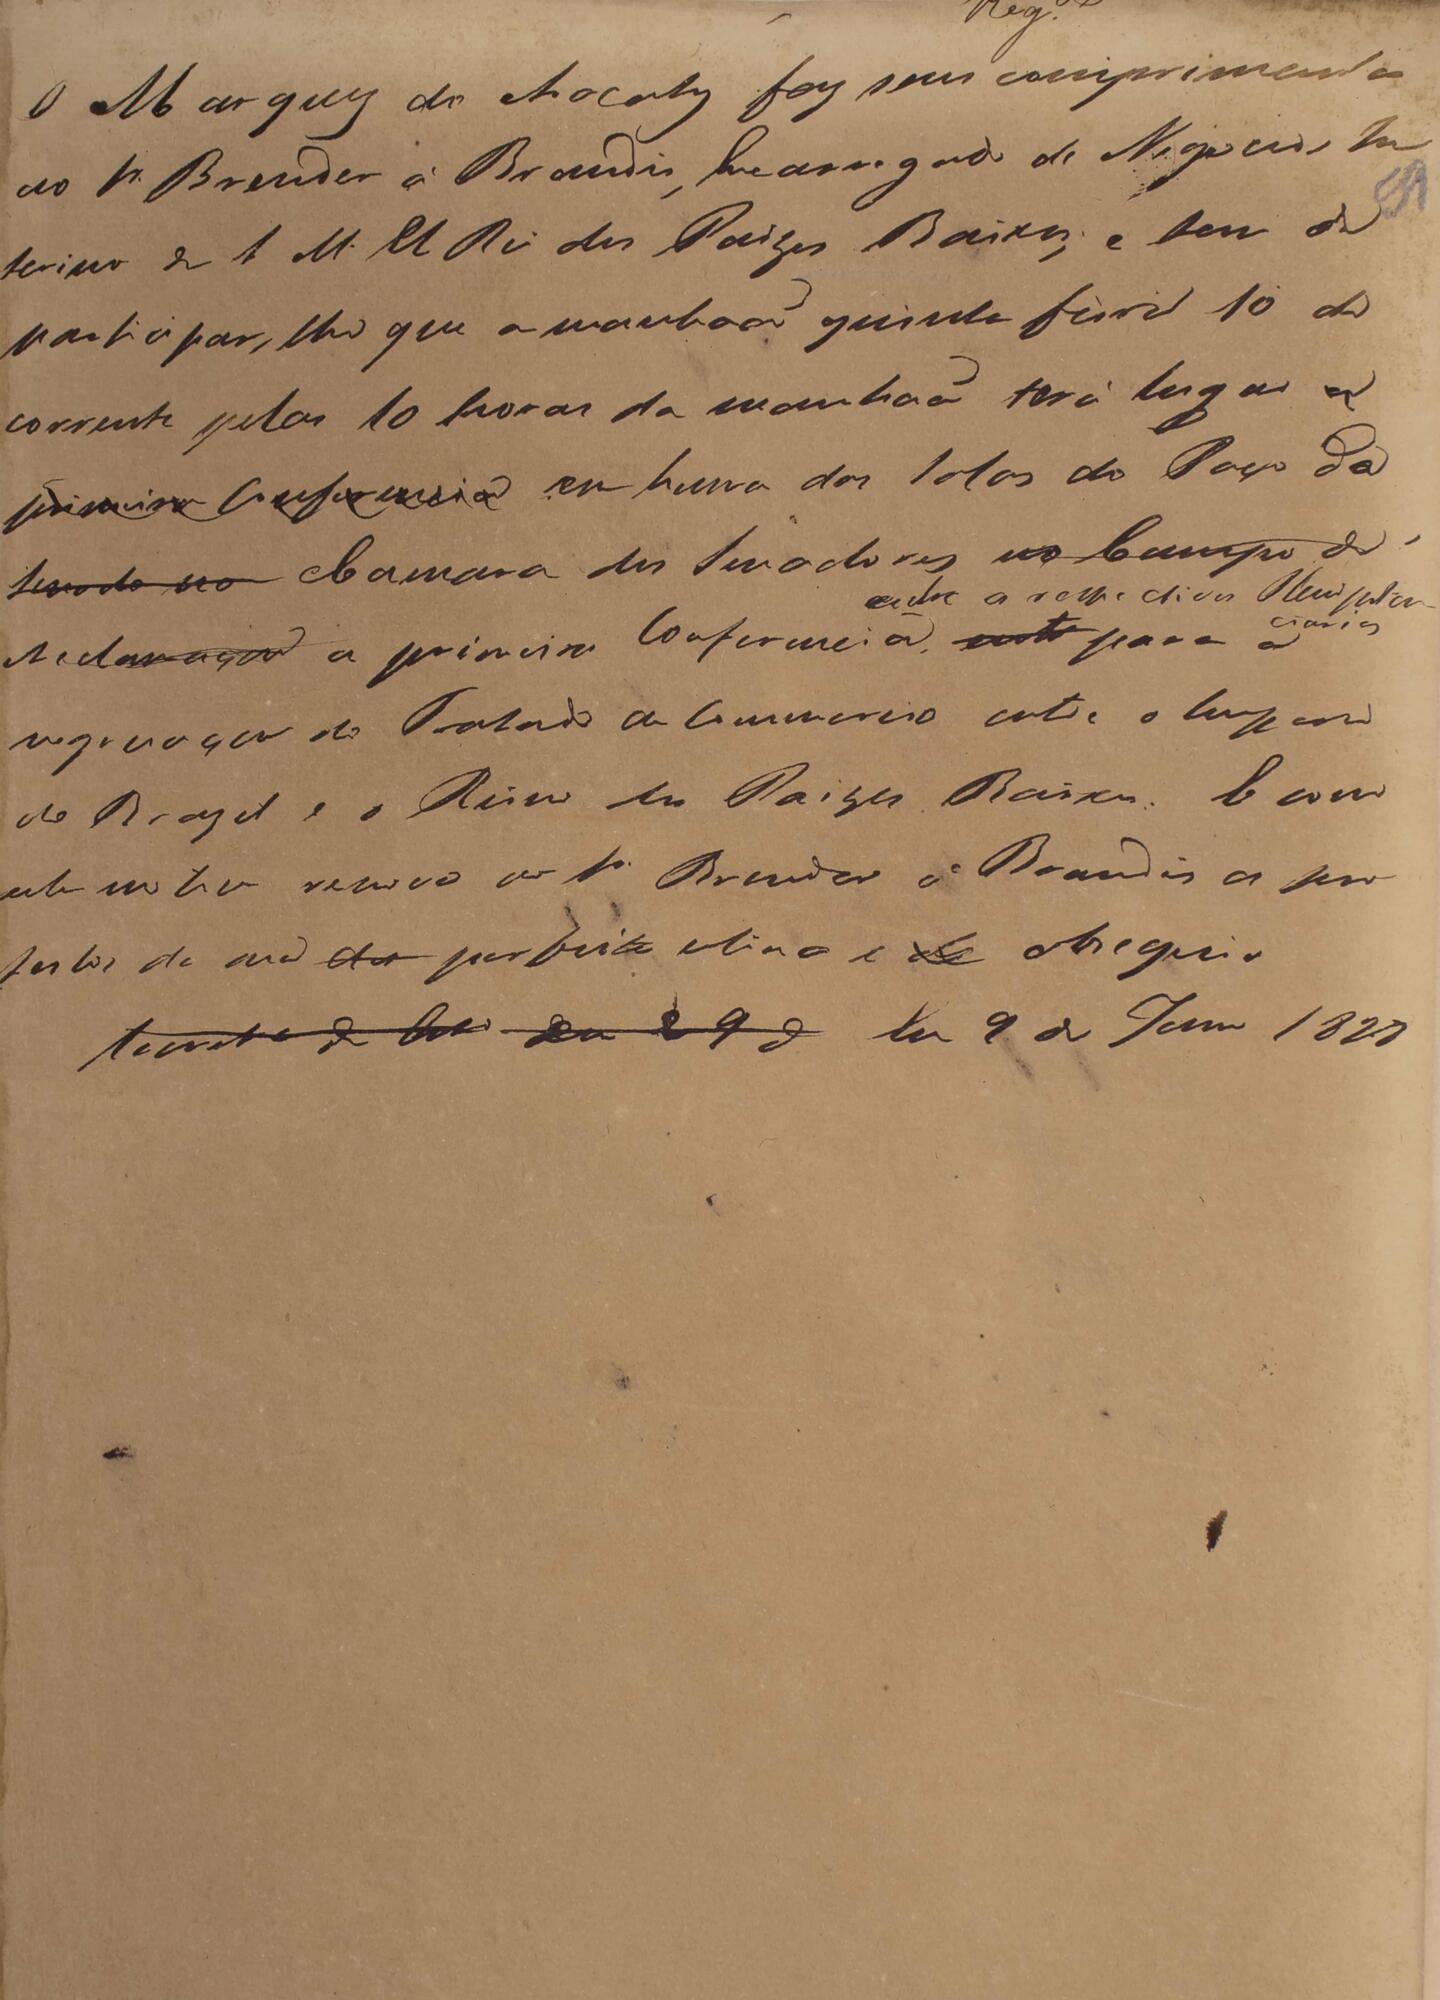 Reg.do
O Marquez do Aracaty faz seus comprimentos
ao Sr. Brender á Brandis, Encarregado de Negocios In
terino de S. M. El Rei dos Paizes Baixos, e tem de
participar, lhe que amanhaã quinta feira 10 do
corrente pelas 10 horas da manhaã terá lugar a
primeira Conferencia em huma das Salas do Paço da
Camara dos Senadores no Campo de
entre os respectivos Plenipoten
ciarios
Acclamação a primeira Conferencia para a
negociação do Tratado de Commercio entre o Imperio
do Brazil e o Reino dos Paizes Baixos. Com
este motivo renova ao Sr. Brender á Brandis os pro
testos de sua perfeita estima e obsequio
Secretaria de Estado em 9 d Em 9 de Janro 1828